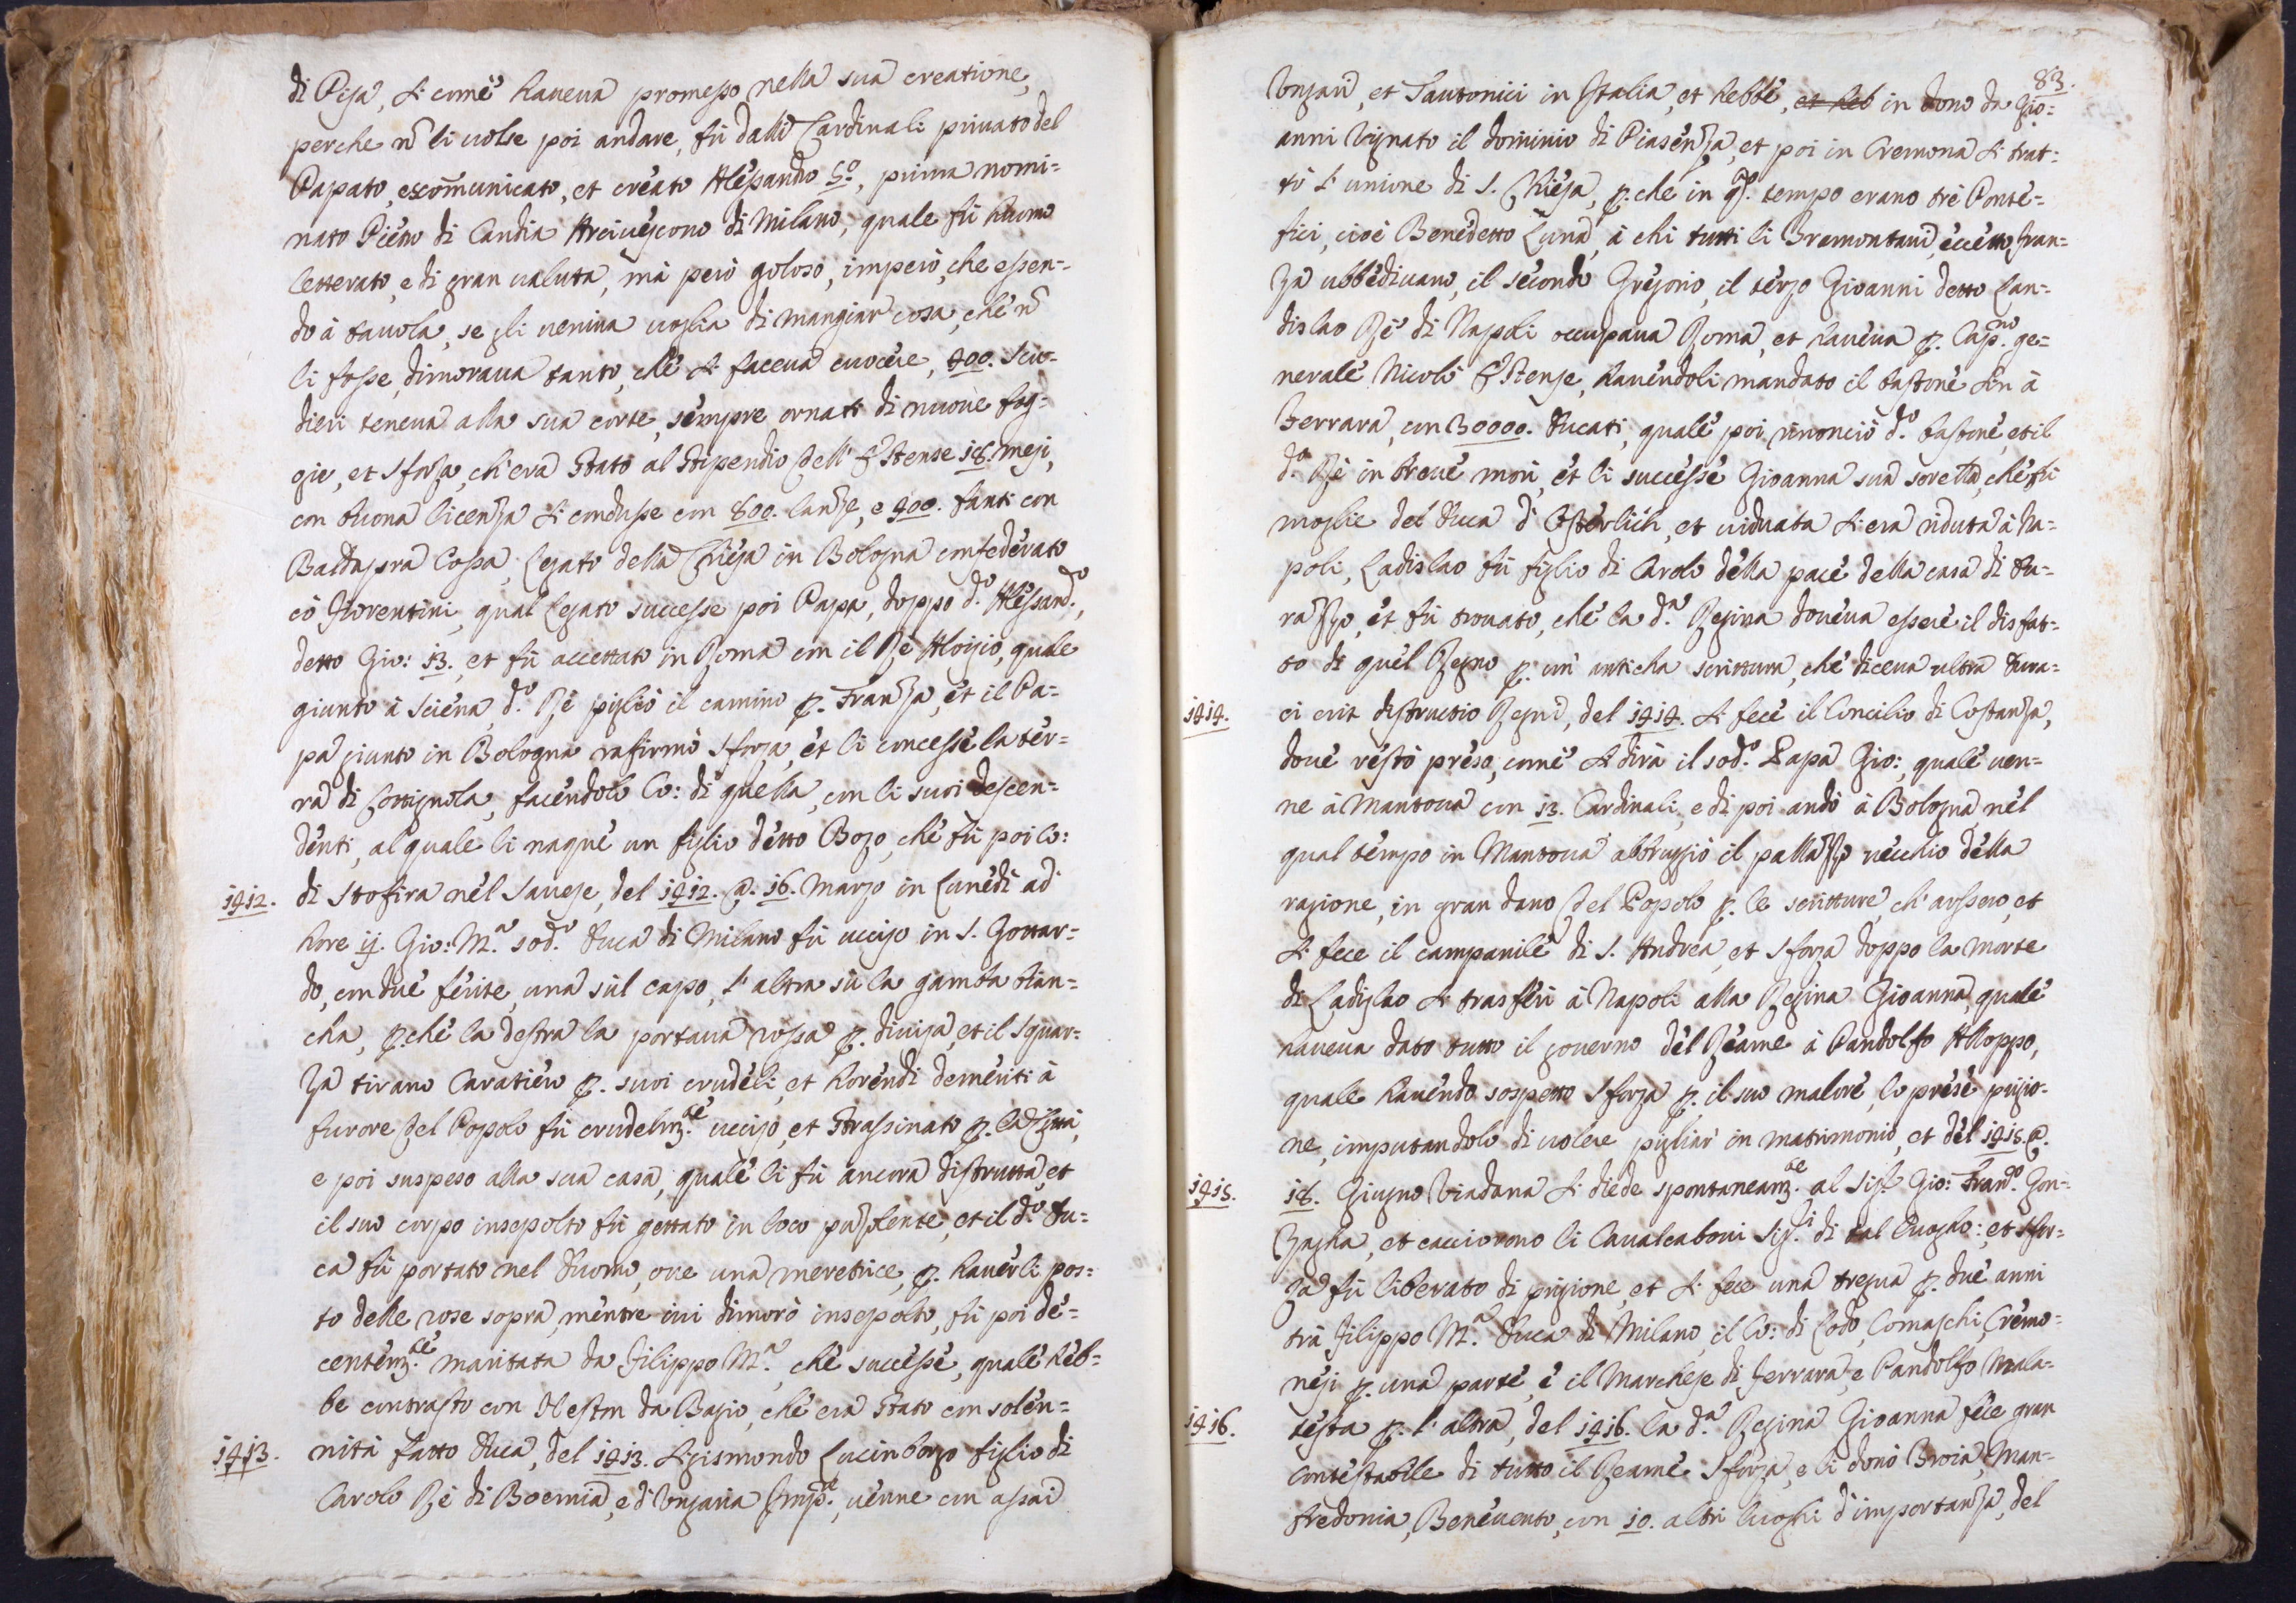 di Pisa, si come haveva promesso nella sua creatione,
perche nō li volse poi andare, fù dalli Cardinali privato del
Papato, escōmunicato, et creato Alessandro 5.º, prima nomi=
nato Pietro di Candia Arcivescovo di Milano, quale fù huomo
letterato, e di gran valuta, mà però goloso, imperò, che essen=
do à tavola, se gli veniva voglia di mangiar cosa, che nō
li fosse, dimorava tanto, che si faceva cuocere, 400. scu=
dieri teneva alla sua corte, sempre ornati di nuove fog=
gie, et Sforza, ch'era stato al stipendio dell'Estense 18. mesi,
con buona licenza si condusse con 800. lanze, e 400. fanti con
Baldassra Cossa, Legato della Chiesa in Bologna confederato
cō Fiorentini, qual Legato successe poi Papa, doppo d.º Alessand.º,
detto Gio: 13. et fù accettato in Roma con il Rè Aloigio, quale
giunto à Sciena, d.º Rè pigliò il camino p. Franza, et il Pa=
pa giunto in Bologna rafirmò Sforza, et li concesse la ter=
ra di Cottignola, facendolo Co: di quella, con li suoi descen=
denti, al quale li naque un figlio detto Bozo, che fù poi Co:
1412. di Stofira nel Savese, del 1412. @. 16. Marzo in Lunedì ad
hore ij. Gio: M.ª sod.º Duca di Milano fù ucciso in S. Gottar=
do, con due ferite, una sul capo, l'altra sù la gamba bian=
cha, p.che la destra la portava rossa p. divisa, et il Squar=
za tirano Caratiero p. suoi crudeli, et horendi demeriti à
furore del Popolo fù crudelm.te ucciso, et strassinato p. la Città,
e poi suspeso alla sua casa, quale li fù ancora distrutta, et
il suo corpo insepolto fù gettato in loco puzolente, et il d.º Du=
ca fù portato nel Duomo, ove una meretrice, p. haverli pos=
to delle rose sopra, mentre ivi dimorò insepolto, fù poi de=
centem.te maritata da Filippo M.ª, che successe, quale heb=
be contrasto con Nestor da Bagio, che era stato con solen=
1413. nità fatto Duca, del 1413. Sigismondo Lucinborgo figlio di
Carolo Rè di Boemia, e d'Ongaria Imp.re, venne con assai
83.
Ongari, et Tautonici in Italia, et hebbe, et heb in dono da Gio=
anni Vignato il dominio di Piasenza, et poi in Cremona si trat=
tò l'unione di S. Chiesa, p.che in q.º tempo erano trè Ponte=
fici, cioè Benedetto Luna, à chi tutti li Bremontani, eccetto Fran=
za ubbedivano, il secondo Gregorio, il terzo Gioanni detto Lan=
dislao Rè di Napoli occupava Roma, et haveva p. Cap.no ge=
nerale Nicolò Estense, havendoli mandato il bastone sin à
Ferrara, con 30000. Ducati, quale poi rinonciò d.º bastone, et il
d.º Rè in breve morì, et li successe Gioanna sua sorella, che fù
moglie del Duca d'Osterlich, et viduata si era riduta à Na=
poli, Ladislao fù figlio di Carolo della pace della casa di Du=
razzo, et fù trovato, che la d.ª Regina doveva essere il disfat=
to di quel Regno p. un'anticha scrittura, che diceva ultra Dura=
1414. ci erit destructio Regni, del 1414. si fece il Concilio di Costanza,
dove restò preso, come si dirà il sod.º Papa Gio:, quale ven=
ne à Mantova con 13. Cardinali, e di poi andò à Bologna nel
qual tempo in Mantova abbruggiò il pallazzo vecchio della
ragione, in gran dano del Popolo p. le scritture, ch'arssero, et
si fece il campanile di S. Andrea, et Sforza doppo la morte
di Ladislao si trasferì à Napoli alla Regina Gioanna, quale
haveva dato tutto il governo del Reame à Pandolfo Aloppo,
quale havendo sospetto Sforza p. il suo malore, lo prese prigio=
ne, imputandolo di volere pigliar in matrimonio, et del 1415. @.
1415. 18. Giugno Viadana si diede spontaneam.te al Sig.r Gio: Fran.º Gon=
zagha, et cacciorono li Cavalcaboni Sig.ri di tal luogho: et Sfor=
za fù liberato di prigione, et si fece una tregua p. due anni
trà Filippo M.ª Duca di Milano, il Co: di Lodo, Comaschi, Cremo=
nesi p. una parte, è il Marchese di Ferrara, e Pandolfo Mala=
1416. testa p. l'altra, del 1416. la d.ª Regina Gioanna fece gran
Contestabile di tutto il Reame Sforza, e li donò Troia, Man=
fredonia, Benevento, con 10. altri luoghi d'importanza, del